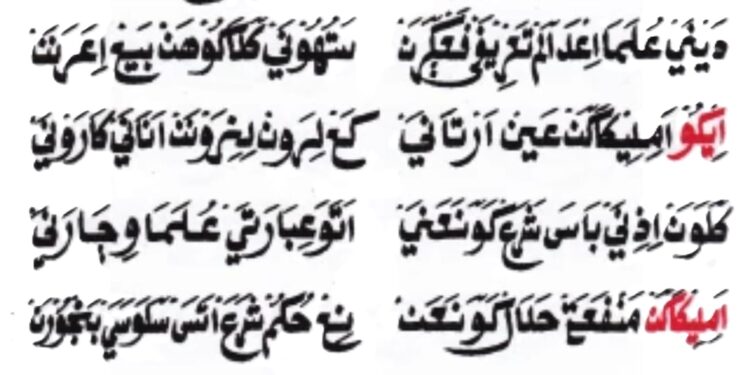 دَيْنَيْ عُلَمَا اِعْدَالَمْ تَعْرِيْفْ فَعْݢِرَنْ سَتُهُوْنَيْ كَلَاكُوْهَنْ بَيْعْ اِعَرَنَنْ
اِيْكُوْ اَمِلِيْكَاكَنْ عَيْنْ اَرْتَا نَيْ كَعْ لِيَرُوْنْ لِنِرَوْنَنْ اَنَانَيْ كَارَوْنَيْ
كَلَوَنْ اِذِنَيْ بَاسَ شَرَعْ كَوْنَعَنَيْ اَتَوَ عِبَارَتَيْ عُلَمَا وِچَارَنَيْ
اَمِلِيْكَاكَنْ مَنْفَعَةْ حَلَالْ كَوْنَعَنْ نِعْ حُكُمْ شَرَعْ